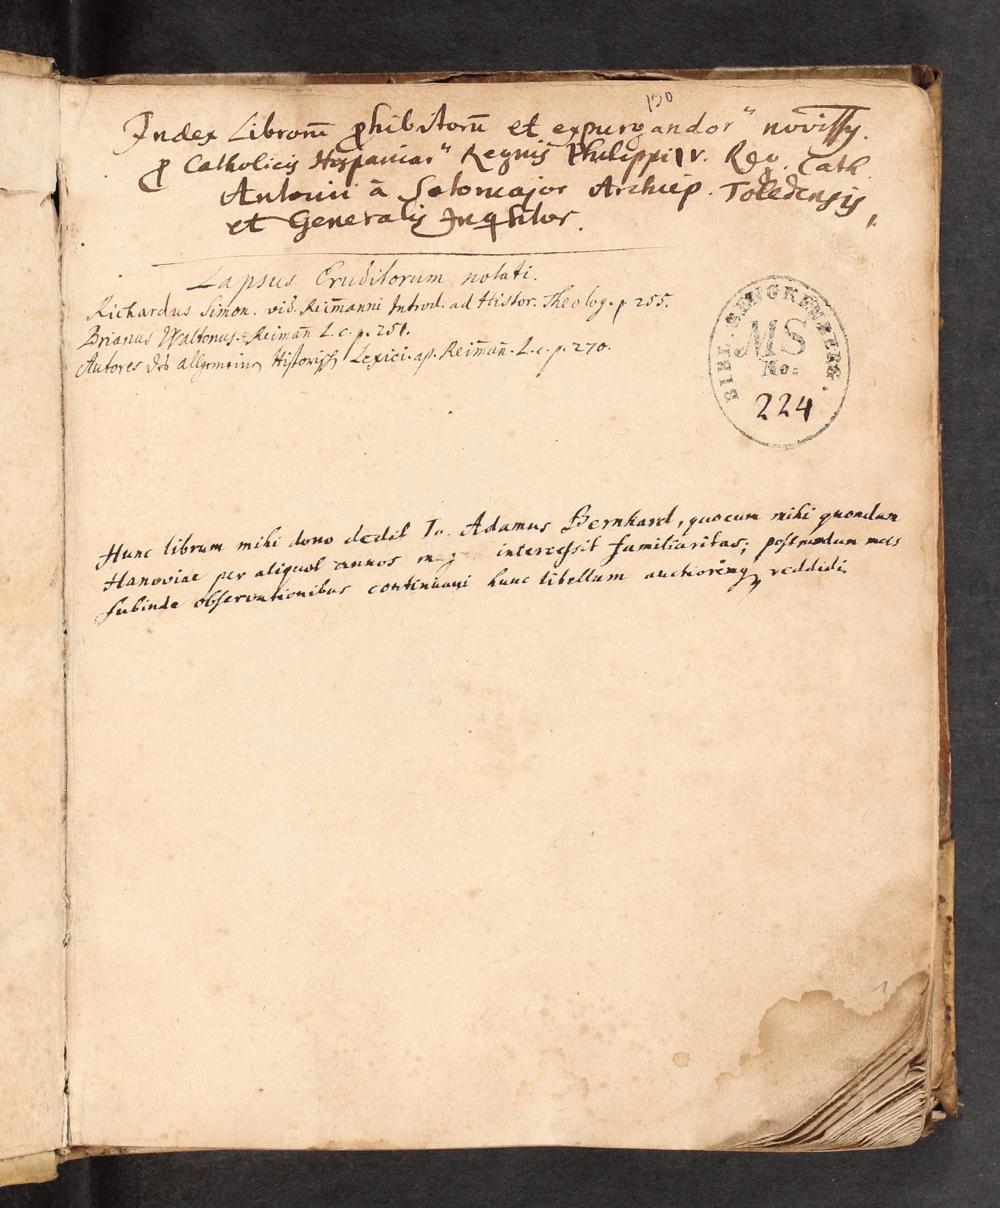 130
Index Libroru̅ ꝓhibitoru̅ et expurgandor" noviss.
ꝓ Catholicis Hispaniar" Regnis Philippi IV. Reg. Cath.
Antonii à Sotomajor Archiep. Toledensis,
et Generalis Inqsitor.
Lapsus Eruditorum notati.
Richardus Simon. vid. Reim̅anni Introd. ad Histor. Theolog. p. 255.
Brianus Waltonus. Reiman̅ L. c. p. 251.
Autores des allgemeinen Historisch Lexici. ap. Reim̅an̅. L. c. p. 270.
BIBL. SENCKENBERG.
MS
No:
224
Hunc librum mihi dono dedit Io. Adamus Bernhard, quocum mihi quondam
Hanoviae per aliquot annos intercessit familiaritas; postmodum meis
subinde observationibus continuavi hunc libellum auctioremq reddidi.
1